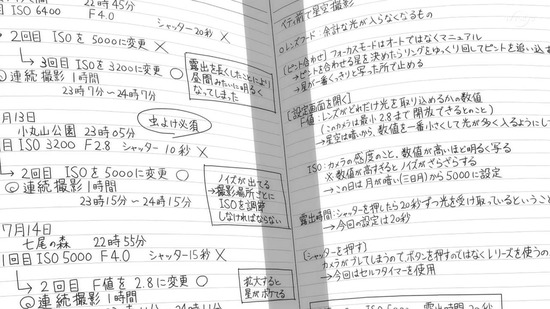 22時45分
ISO 6400 F4.0 シャッター20秒 ×
2回目 ISOを5000に変更 ×
3回目 ISOを3200に変更 ○
連続撮影 1時間
23時7分~24時7分
露出を長くしたことにより
昼間みたいに明るく
なってしまった
月13日
小丸山公園 23時05分
虫よけ必須
ISO 3200 F2.8 シャッター10秒 ×
2回目 ISOを5000に変更 ○
連続撮影 1時間
23時15分~24時15分
ノイズが出てる
→撮影場所ごとに
ISOを調整
しなければならない
7月14日
七尾の森 22時55分
1回目 ISO 5000 F4.0 シャッター15秒 ×
2回目 F値を2.8に変更 ○
連続撮影 1時間
拡大すると
星がボケてる
で星空撮影
○レンズフード:余計な光が入らなくなるもの
(ピント合わせ) フォーカスモードはオートではなくマニュアル
→ピントを合わせる星を決めたらリングをゆっくり回してピントを追い込ま
→星が一番くっきり写った所で止める
(設定画面を開く)
F値:レンズがどれだけ光を取り込めるかの数値
(このカメラは最小2.8まで開放できるとのこと)
→星空は暗いから、数値を一番小さくして光が多く入るようにして
ISO:カメラの感度のこと、数値が高いほど明るく写る
※数値が高すぎるとノイズがざらざらする
→この日は月が暗い(三日月)から5000に設定
露出時間:シャッターを押したら20秒ずつ光を受け取っているという
→今回の設定は20秒
(シャッターを押す)
カメラがブレてしまうので、ボタンを押すのではなくレリーズを使うの
→今回はセルフタイマーを使用